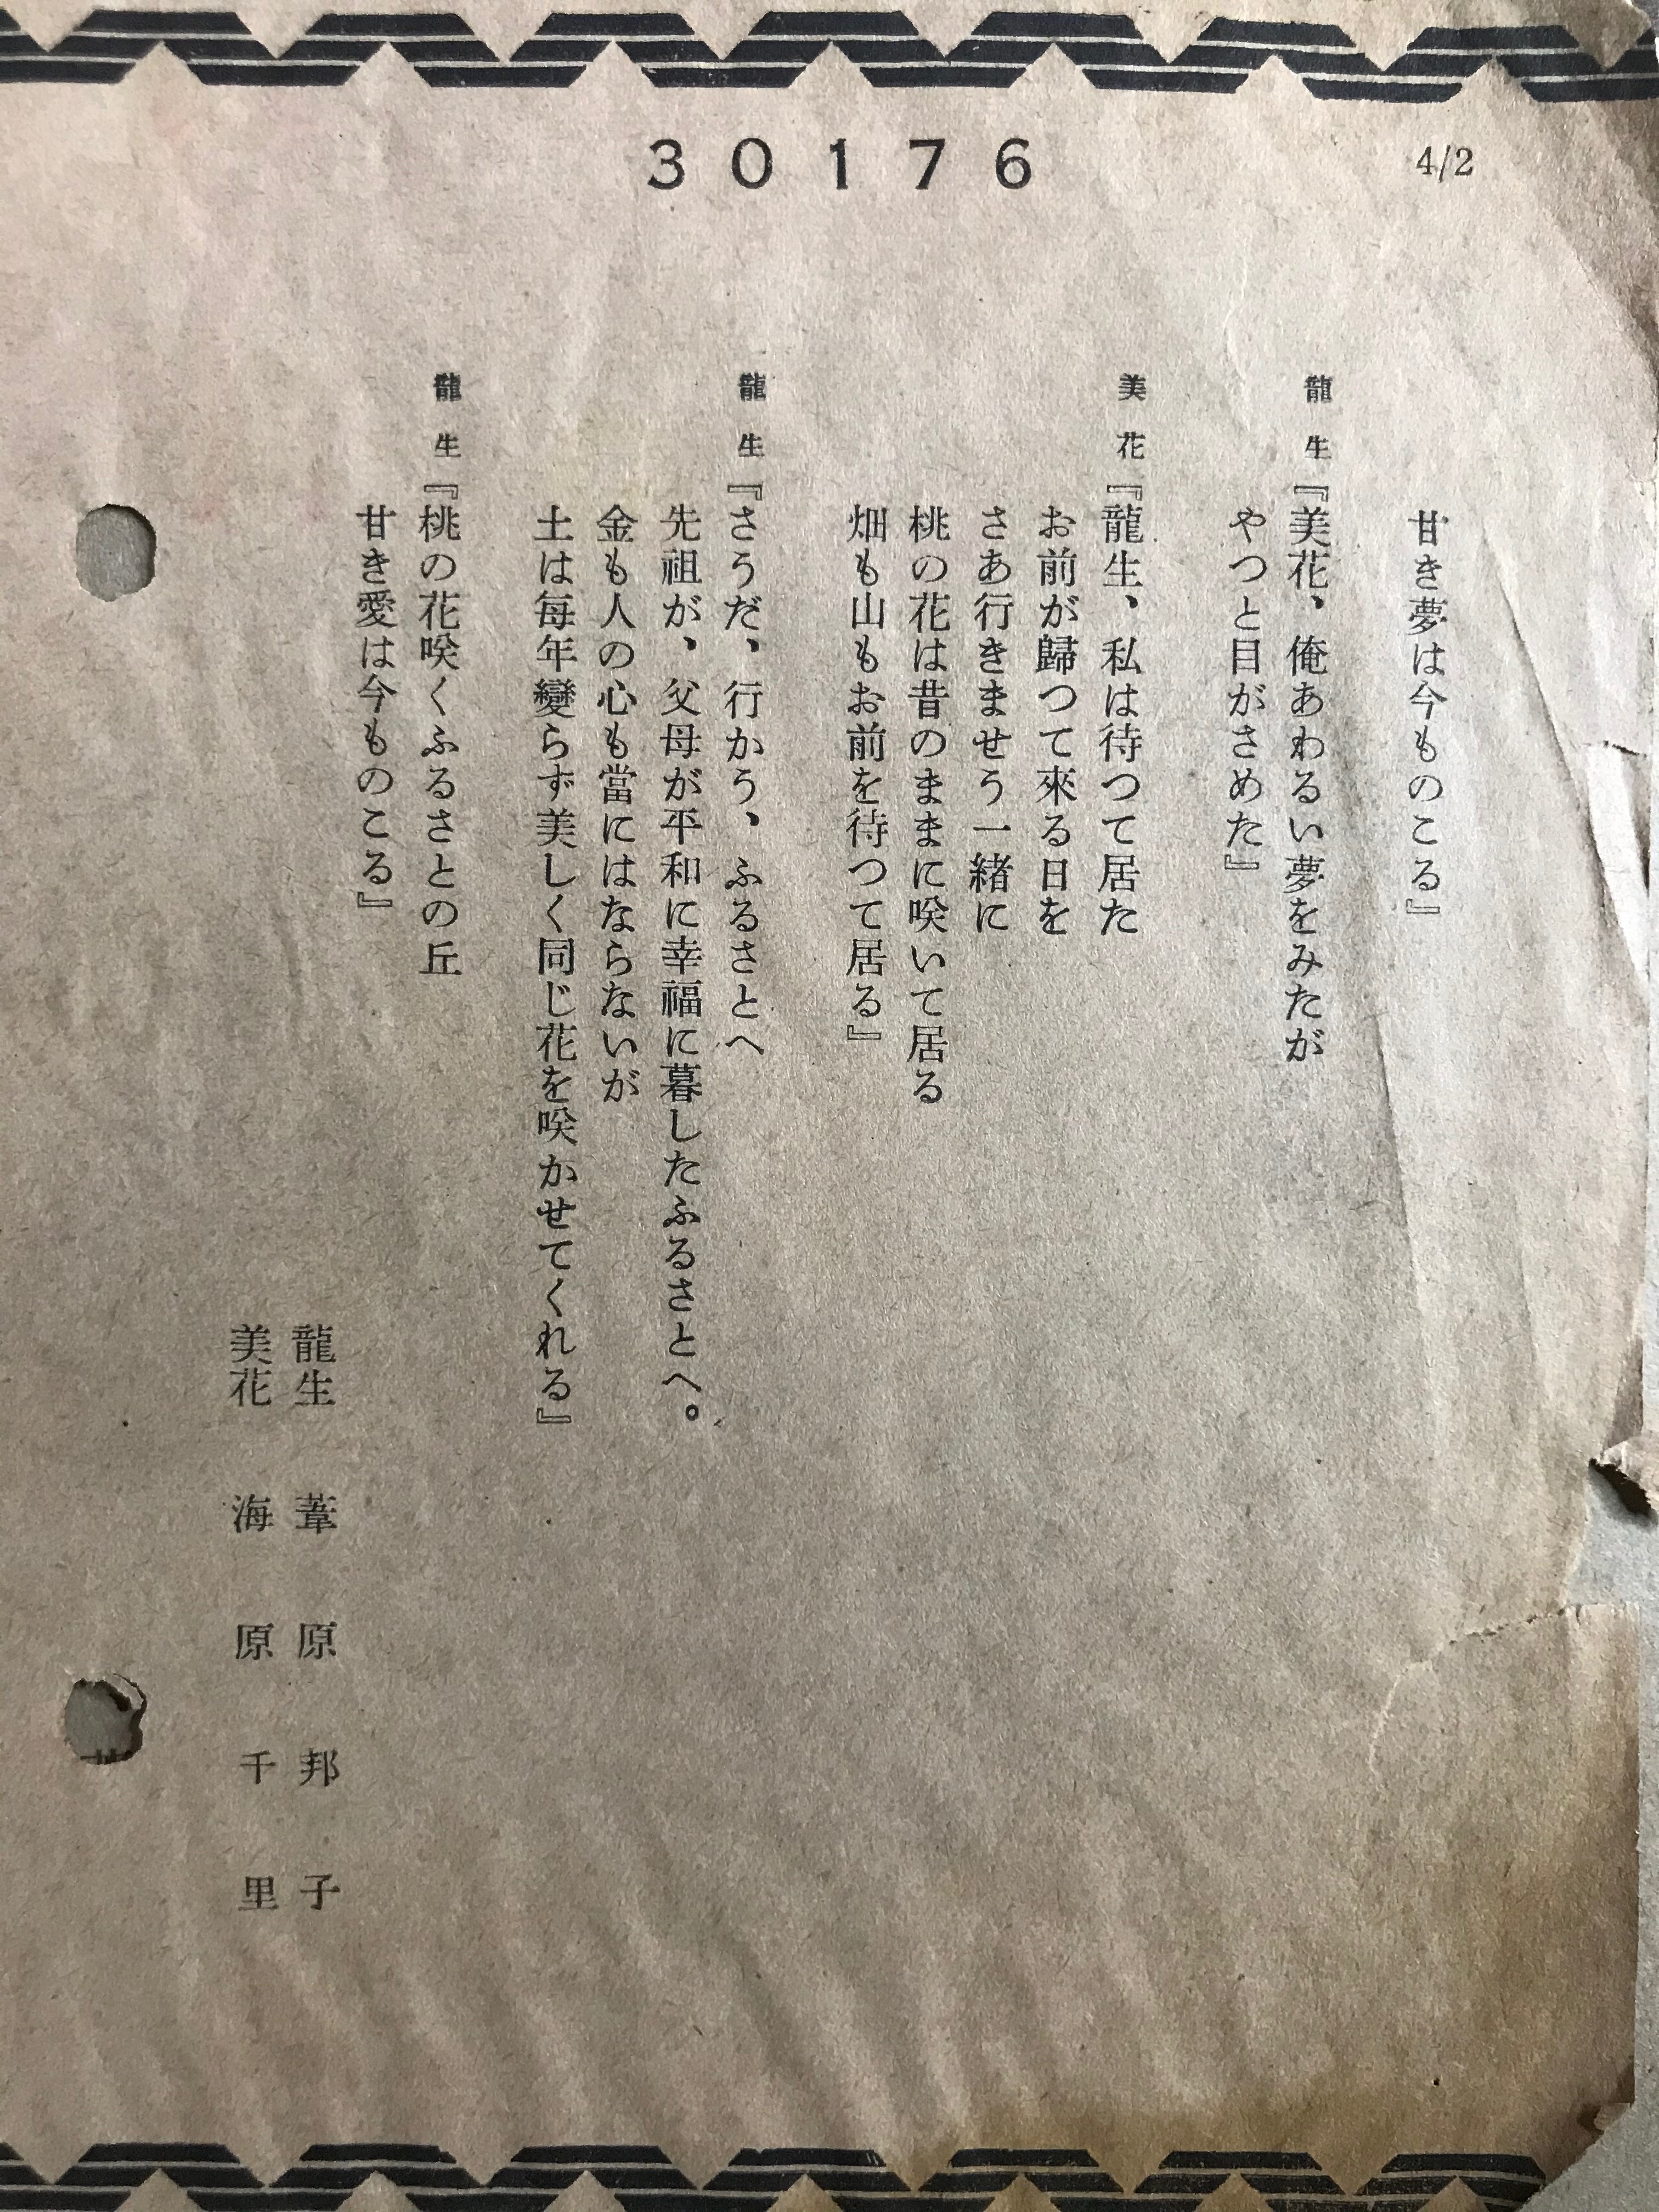 30176
4/2
甘き夢は今ものこる』
龍生『美花、俺あわるい夢をみたが
やつと目がさめた』
美花『龍生、私は待つて居た
お前が歸つて來る日を
さあ行きませう一緒に
桃の花は昔のままに咲いて居る
畑も山もお前を待つて居る』
龍生『さうだ、行かう、ふるさとへ
先祖が、父母が平和に幸福に暮したふるさとへ。
金も人の心も當にはならないが
土は毎年變らず美しく同じ花を咲かせてくれる』
龍生『桃の花咲くふるさとの丘
甘き愛は今ものこる』
龍生 葦原邦子
美花 海原千里